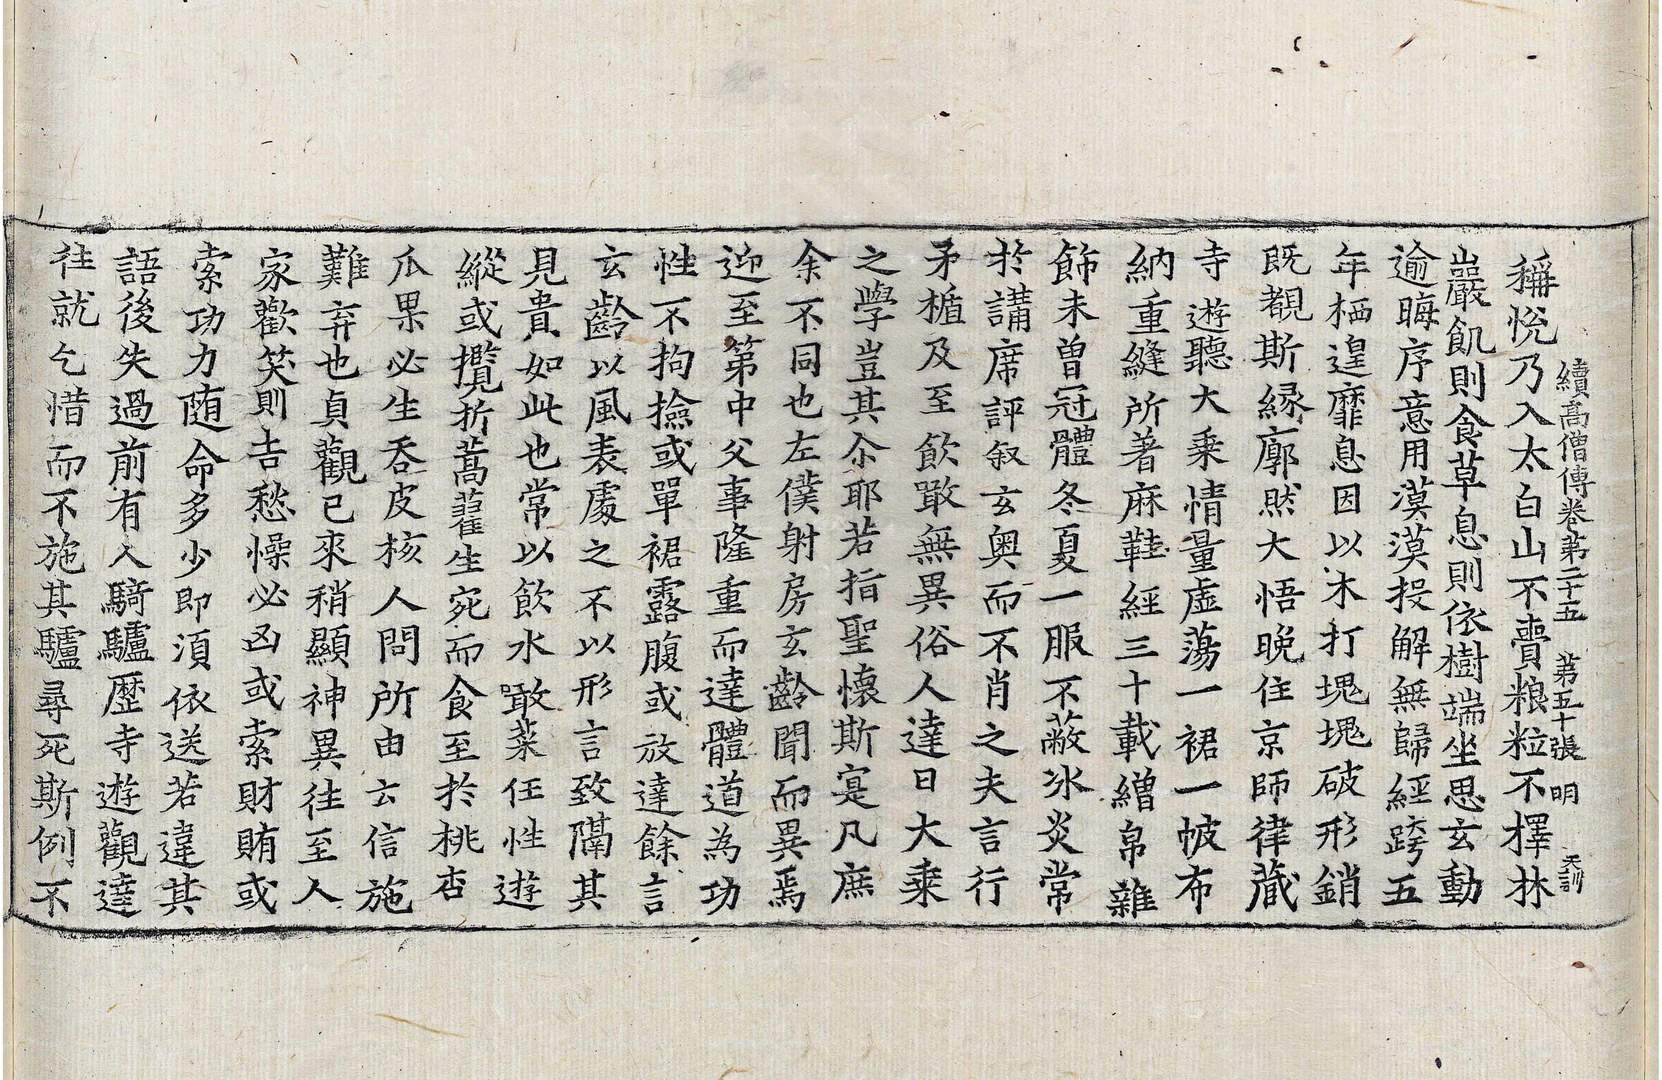 續高僧傳卷第二十五　第五十張　明　天訓
稱悅乃入太白山不賷粮粒不擇林
巖飢則食草息則依樹端坐思玄動
逾晦序意用漠漠投解無歸經跨五
年栖遑靡息因以木打塊塊破形銷
既覩斯縁廓然大悟晚住京師律蔵
寺遊聽大乗情量虛蕩一裙一帔布
納重縫所著麻鞋經三十載繒帛雜
飾未曾冠體冬夏一服不蔽冰炎常
於講席評叙玄奧而不肖之夫言行
矛楯及至飲噉無異俗人達曰大乗
之學豈其尒耶若指聖懷斯寔凡庶
余不同也左僕射房玄齡聞而異焉
迎至第中父事隆重而達體道為功
性不拘撿或單裙露腹或放達餘言
玄齡以風表處之不以形言致隔其
見貴如此也常以飲水噉菜任性遊
縱或攬折蒿藋生宛而食至於桃杏
瓜果必生吞皮核人問所由云信施
難弃也貞觀已來稍顯神異往至人
家歡笑則吉愁懆必凶或索財賄或
索功力随命多少即須依送若違其
語後失過前有人騎驢歷寺遊觀達
往就乞惜而不施其驢尋死斯例不